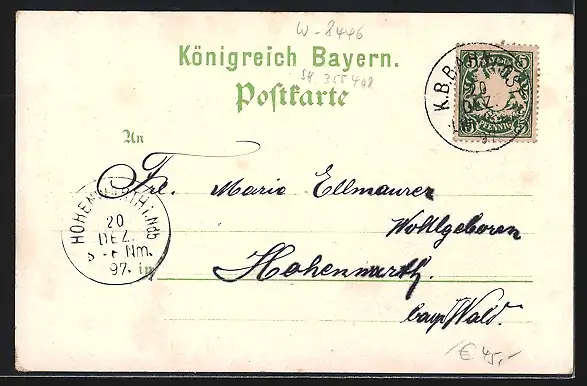 W-8446
Königreich Bayern.
St. 355 402
Postkarte
K.B.BAHNPOST
20
DEZ
5 5
PFENNIG
5 5
An
Frl. Marie Ellmaurer
Wohlgeboren
Hohenwarth.
bayr/Wald.
HOHENWARTH i.Ndb
20
DEZ.
Nm.
97.
in
€ 45,-